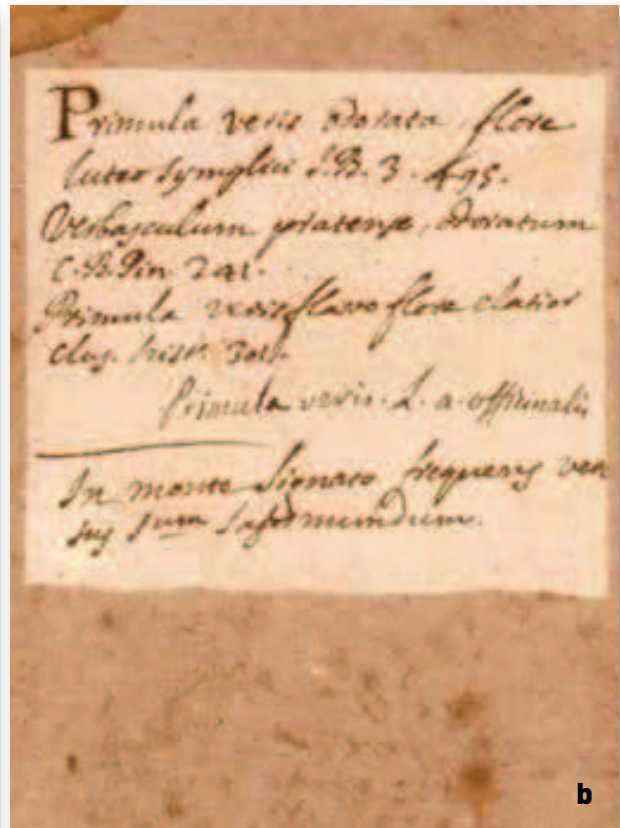 Primula veris odorata, flore
luteo symplici J.B. 3. 495.
Verbasculum pratense, odoratum
C.B. Pin. 241.
Primula veris flavo flore elatior
Clus. hist. 301.
Primula veris. L. a. officinalis
In monte frequens ver
sus
b